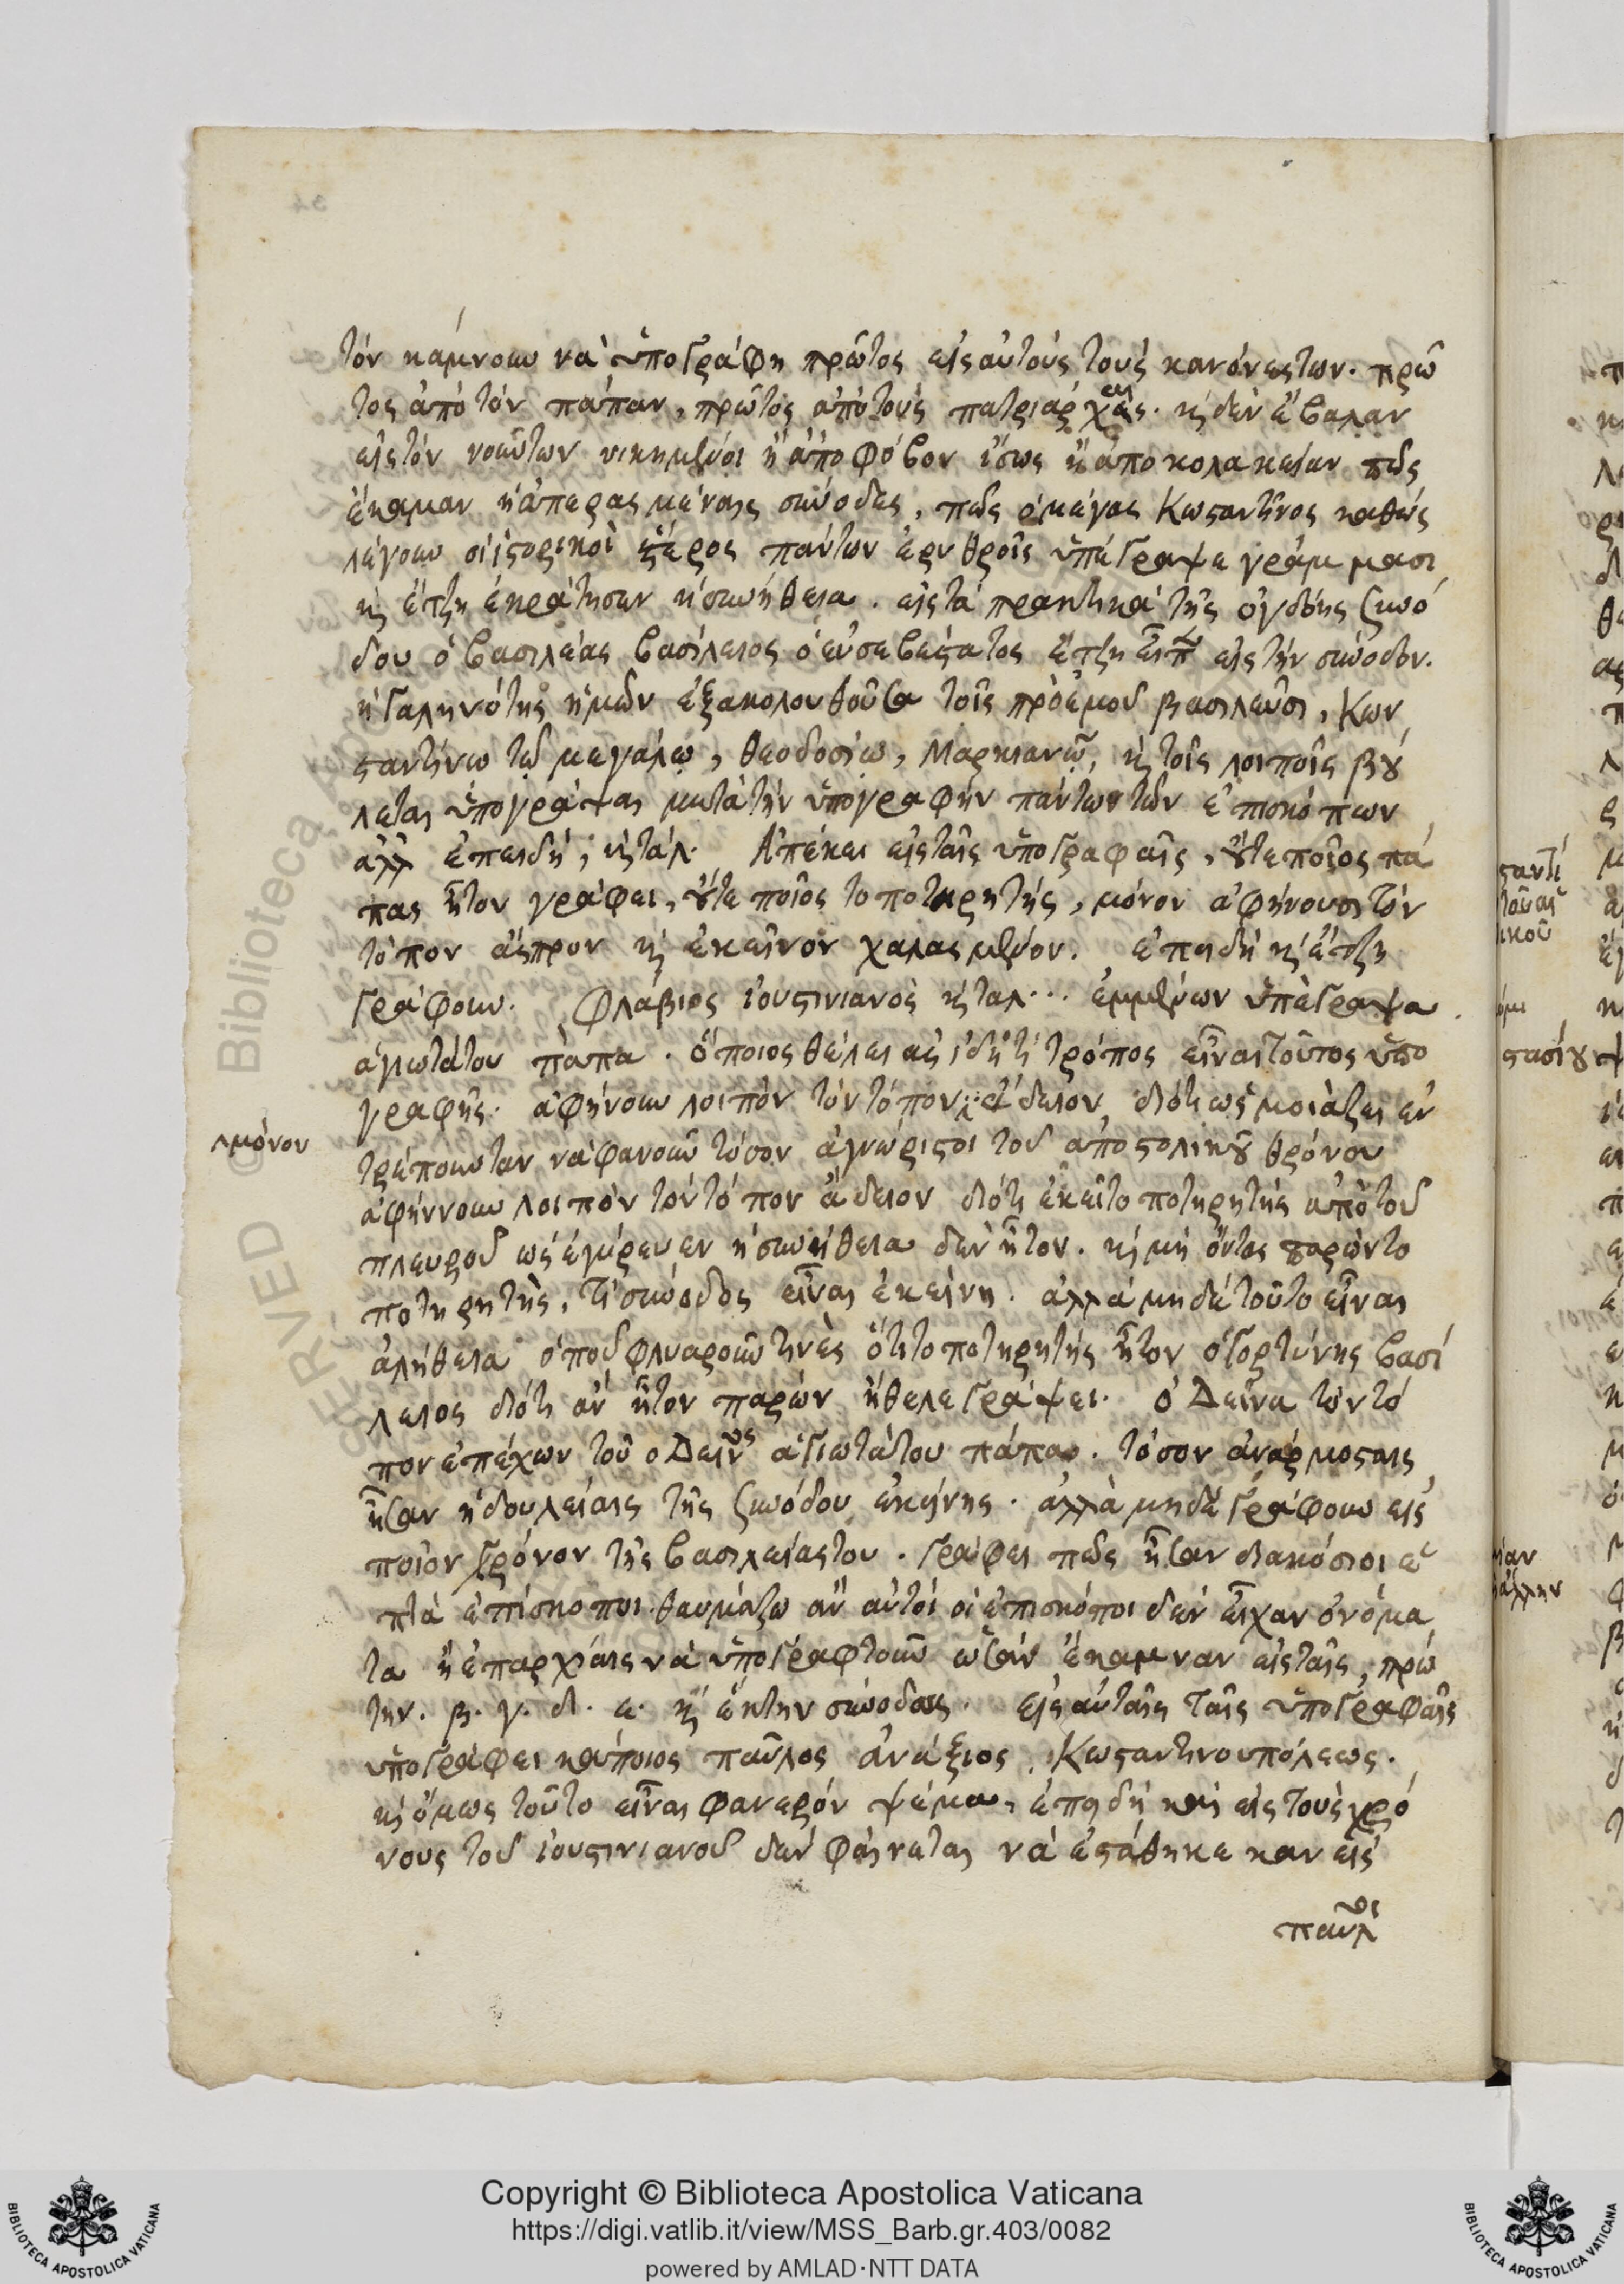 τόν κάμνουν νὰ ὑπογράφῃ πρῶτος εἰς αὐτούς τούς κανόνες των. πρῶ
τος ἀπό τόν πάπαν, πρῶτος ἀπό τούς πατριάρχας. κ̀ δὲν ἔβαλαν
εἰς τόν νοῦν των νικημένοι ἢ ἀπό φόβον ἴσως ἢ ἀπό κολακείαν πῶς
ἔκαμαν ἡ ἀπερασμέναις σύνοδες, πῶς ὁ μέγας Κωσταντῖνος καθώς
λέγουν οἱ ἱστορικοὶ ὕστερος πάντων ἐρυθροῖς ὑπέγραψε γράμμασι
κ̀ ἔτζη ἐκράτησεν ἡ συνήθεια. εἰς τά πρακτικά τῆς ὀγδόης ζυνό
δου ὁ βασιλέας βασίλειος ὁ εὐσεβέστατος ἔτζη εἶπ εἰς τήν σύνοδον.
ἡ γαληνότης ἡμῶν ἐξακολουθοῦσα τοῖς πρὸ ἐμοῦ βασιλεῦσι, Κων
σταντίνω τῷ μεγάλῳ, θεοδοσίω, Μαρκιανῶ, κ̀ τοῖς λοιποῖς βού
λεται ὑπογράψαι μετὰ τὴν ὑπογραφὴν πάντων τῶν ἐπισκόπων
ἀλλ ἐπειδή, κ̀ τάλ. Ἀπέκει εἰς ταῖς ὑπογραφαῖς, οὔτε ποῖος πά
πας ἦτον γράφει, οὔτε ποῖος τοποτηρητής, μόνον ἀφήνουσι τόν
τόπον ἄσπρον κ̀ ἐκεῖνον χαλασμένον. ἐπειδή κ̀ ἔτζη
γράφουν. Φλάβιος ἰουστινιανὸς κ̀ ταλ... ἐμμένων ὑπέγραψα
ἁγιωτάτου πάπα. ὅποιος θέλει ἄς ἰδῇ τί τρόπος εἶναι τοῦτος ὑπο
γραφῆς. ἀφήνουν λοιπόν τόν τόπον ἄδειον, διότι ὡς μοιάζει ἐν
μόνον
τρέπουνταν νὰ φανοῦν τόσον ἀγνώριστοι τοῦ ἀποστολικοῦ θρόνου
ἀφήννουν λοιπόν τόν τόπον ἄδειον διότι ἐκεῖ τοποτηρητής ἀπὸ τοῦ
πλευροῦ ὡς ἐγύρευεν ἡ συνήθεια δὲν ἦτον. κ̀ μή ὄντας παρὼν το
ποτηρητής, τί σύνοδος εἶναι ἐκείνη. ἀλλά μηδέ τοῦτο εἶναι
ἀλήθεια ὁποῦ φλυαροῦν τινὲς ὅτι τοποτηρητής ἦτον ὁ γορτύνης βασί
λειος διότι ἂν ἦτον παρών ἤθελε γράψει. ὁ Δεῖνα τόν τό
πον ἐπέχων τοῦ ο Δεῖνος ἁγιωτάτου πάπα. τόσον ἀνάρμοσταις
ἦσαν ἡ δουλείαις τῆς ζυνόδου ἐκείνης. ἀλλὰ μηδέ γράφουν εἰς
ποῖον χρόνον τῆς βασιλείας του. γράφει πῶς ἦσαν διακόσιοι ε
πτά ἐπίσκοποι. θαυμάζω ἂν αὐτοί οἱ ἐπισκόποι δέν εἶχαν ὀνόμα
τα ἢ ἐπαρχίαις νὰ ὑπογραφτοῦν ὡσάν ἔκαμναν εἰς ταῖς, πρώ
την. β. γ. δ. ε. κ̀ ἕκτην σύνοδους. εἰς αὐταῖς ταῖς ὑπογραφαῖς
ὑπογράφει κάποιος παῦλος ἀνάξιος Κωσταντινουπόλεως.
κ̀ ὅμως τοῦτο εἶναι φανερόν ψέμα, ἐπειδή καὶ εἰς τούς χρό
νους τοῦ ἰουστινιανοῦ δέν φαίνεται νὰ ἐστάθηκε καν εἰς
παῦλος